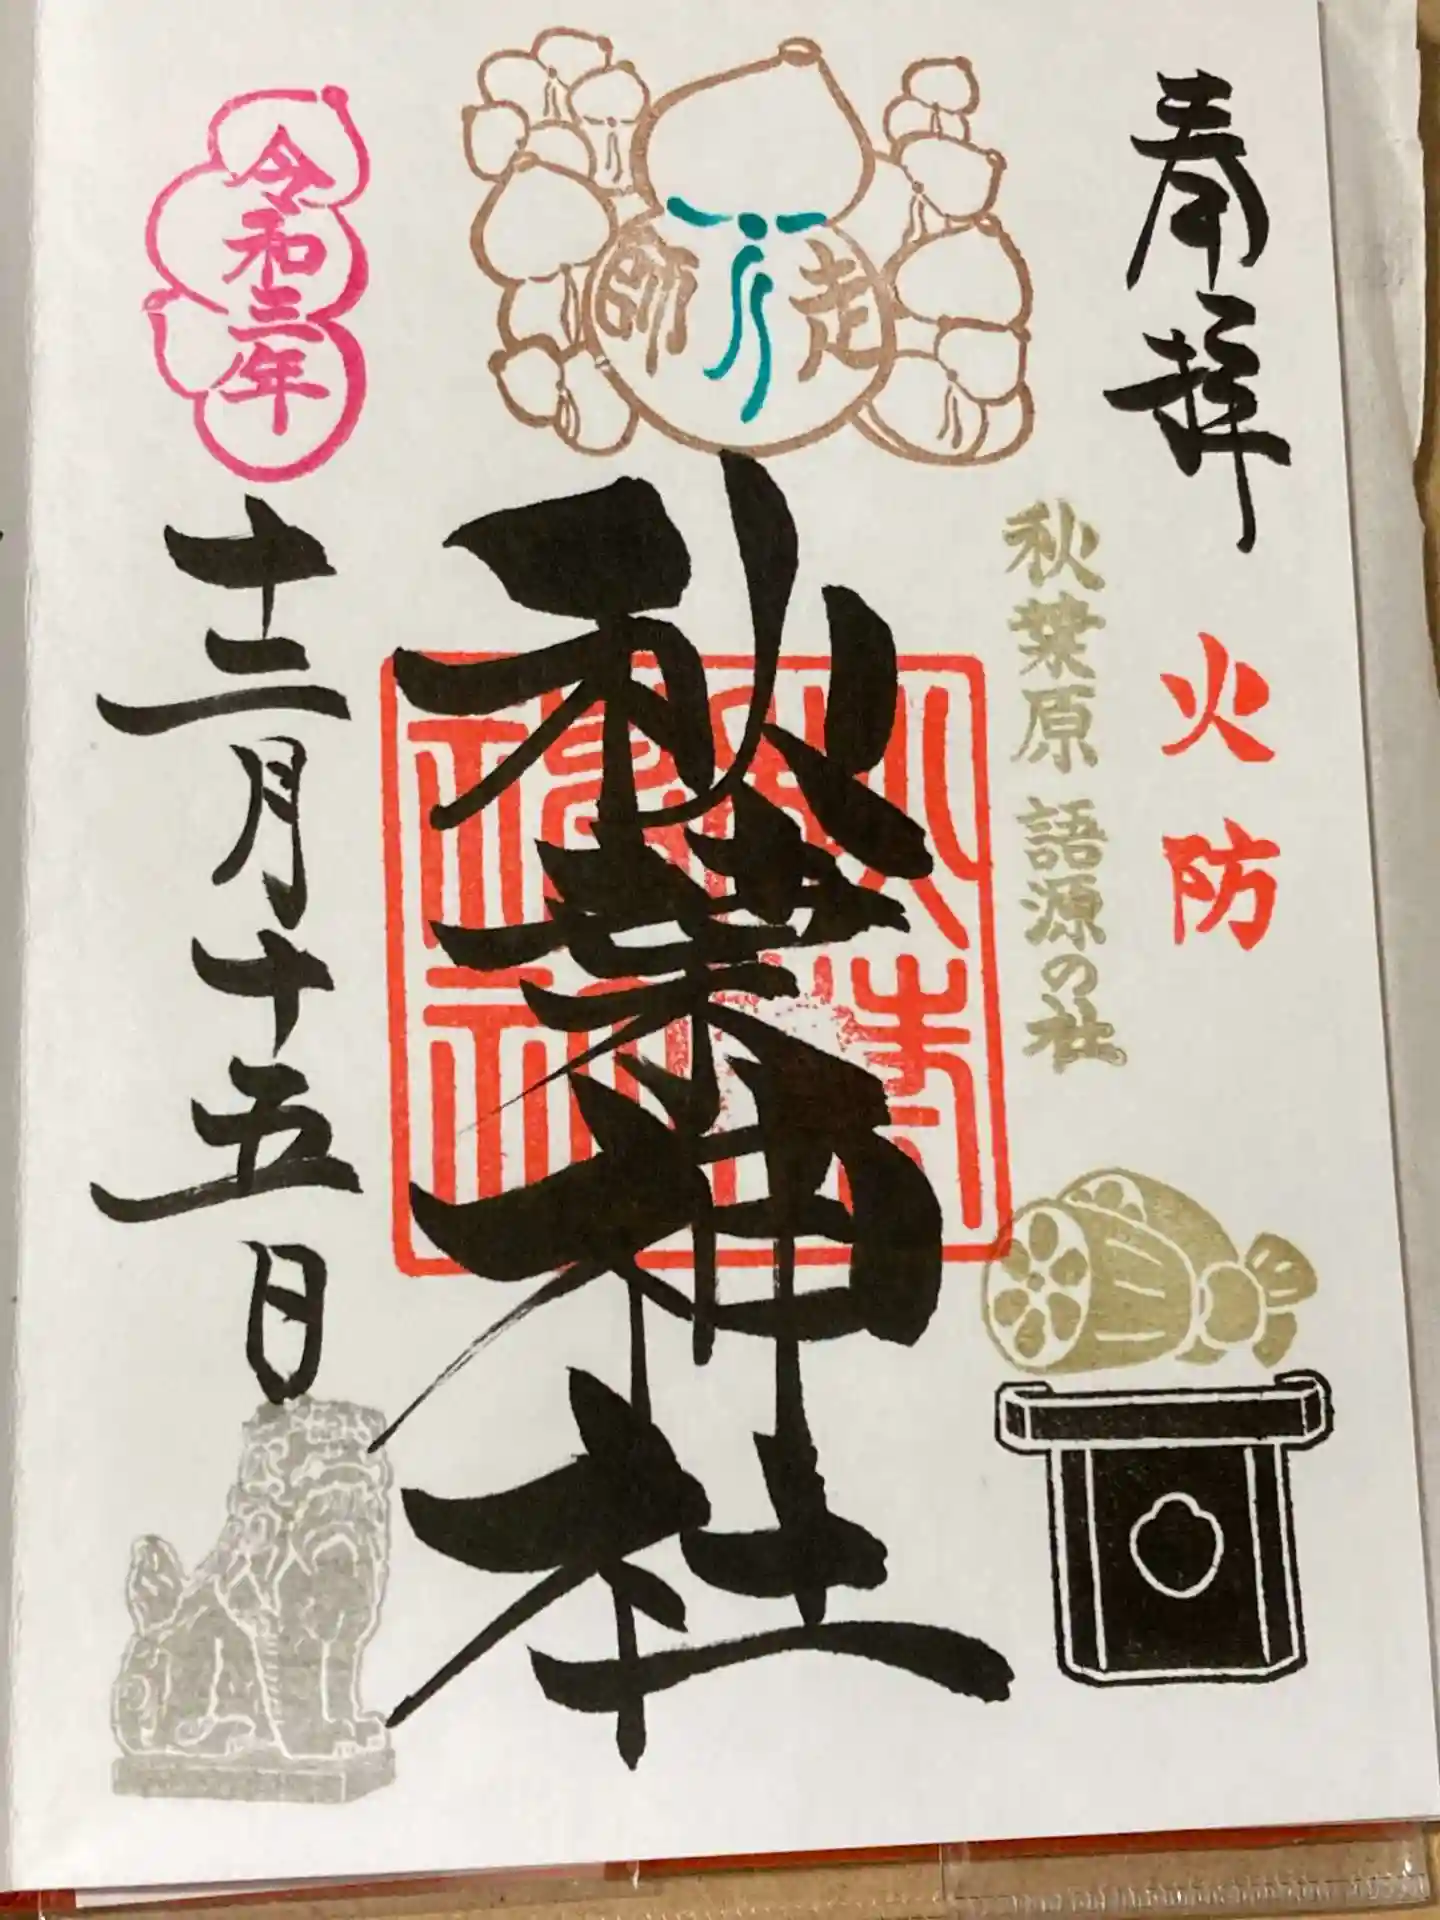 奉拝
火防
秋葉原 語源の社
師走
秋葉神社
令和三年
十二月十五日